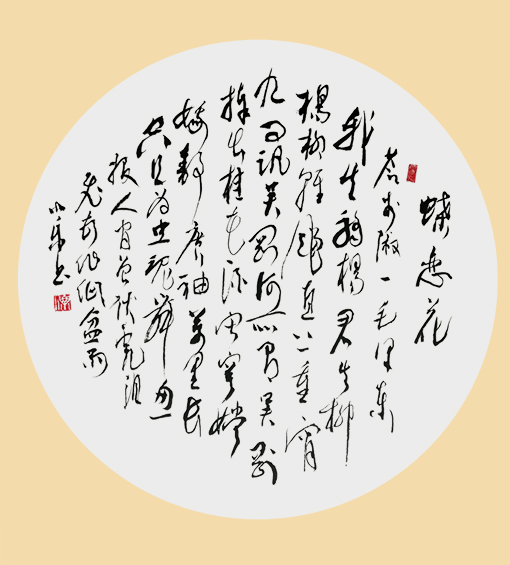 蝶恋花
答李淑一毛泽东
我失骄楊君失柳
楊柳轻飏直上重霄
九问讯吴刚何所有吴刚
捧出桂花酒寂寞嫦
娥舒广袖萬里长
空且为忠魂舞忽
报人间曾伏虎泪
飞顿作倾盆雨
书